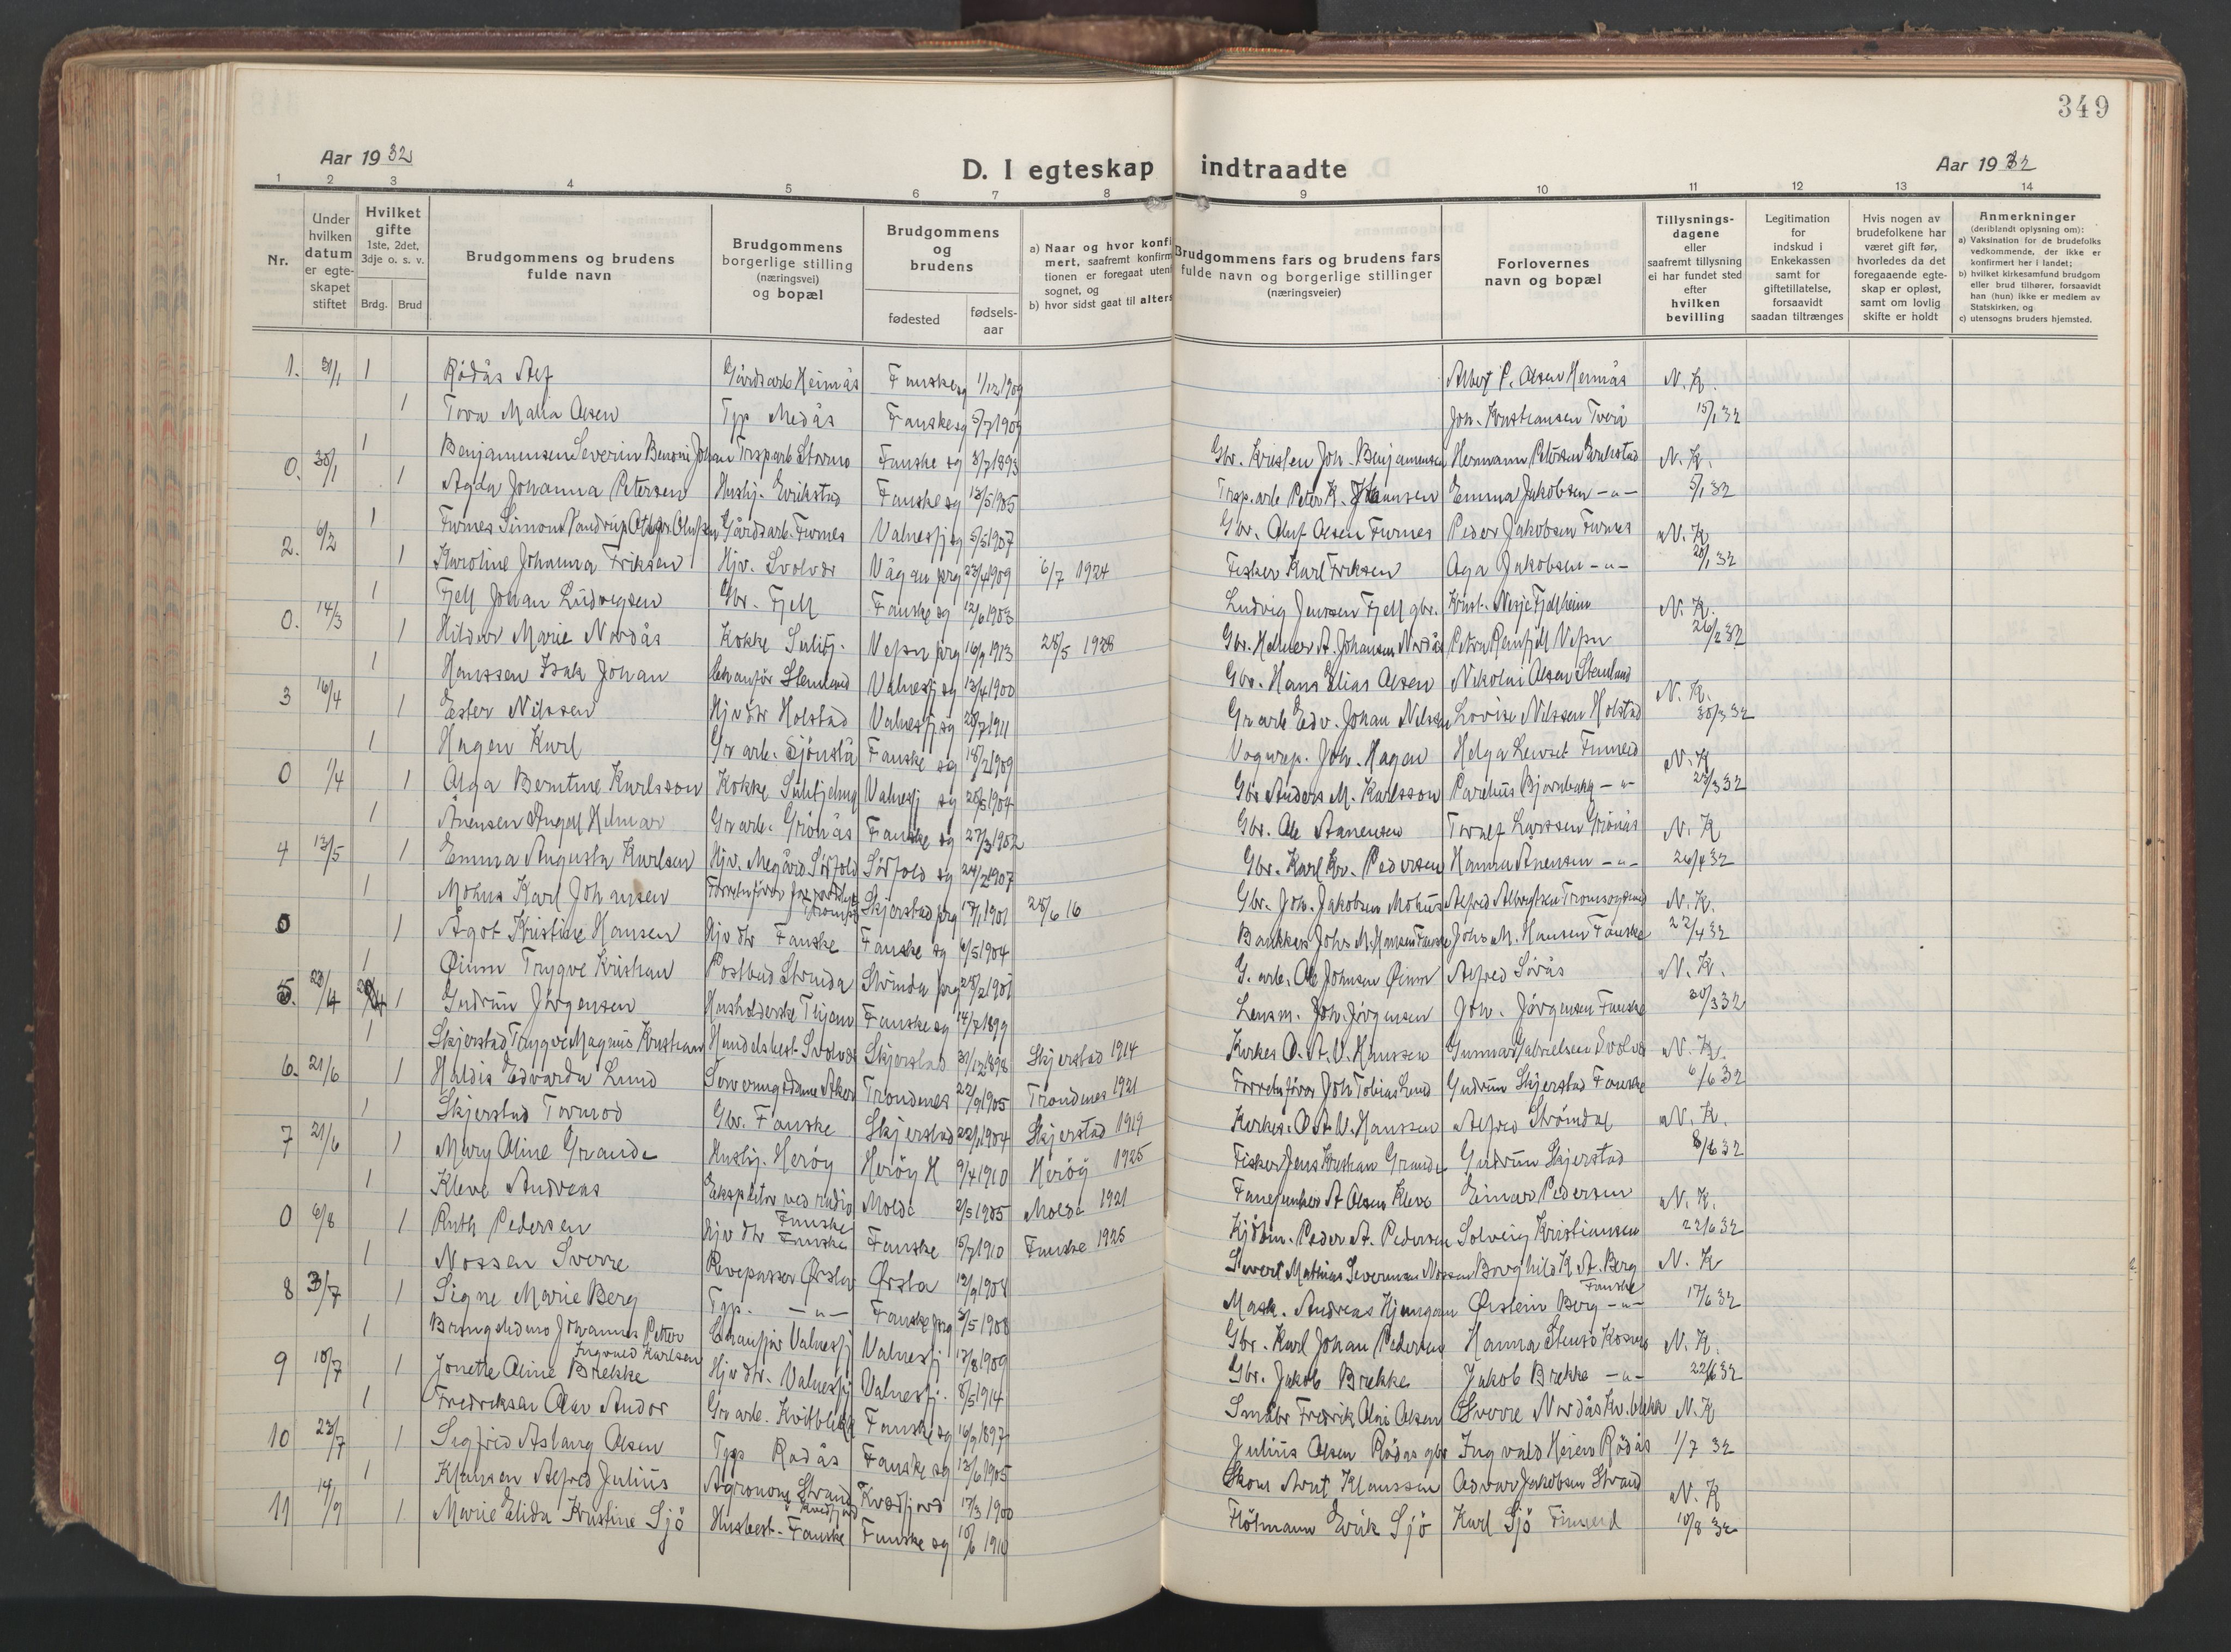 349
Aar 1932
D. I egteskap indtraadte
Aar 1932
1 2 3 4 5 6 7 8 9 10 11 12 13 14
Nr.
Under hvilken datum er egteskapet stiftet
Hvilket gifte 1ste, 2det, 3dje o. s. v.
Brdg. Brud
Brudgommens og brudens fulde navn
Brudgommens borgerlige stilling (næringsvei) og bopæl
Brudgommens og brudens
fødested
fødselsaar
a) Naar og hvor konfi
mert, saafremt konfirm
tionen er foregaat uten
sognet, og
b) hvor sidst gaat til alters
Brudgommens fars og brudens fars fulde navn og borgerlige stillinger (næringsveier)
Forlovernes navn og bopæl
Tillysningsdagene eller saafremt tillysning ei har fundet sted efter hvilken bevilling
Legitimation for indskud i Enkekassen samt for giftetillatelse, forsaavidt saadan tiltrænges
Hvis nogen av brudefolkene har været gift før, hvorledes da det foregaaende egteskap er opløst, samt om lovlig skifte er holdt
Anmerkninger (deriblandt oplysning om):
a) Vaksination for de brudefolks vedkommende, der ikke er konfirmert her i landet;
b) hvilket kirkesamfund brudgom eller brud tilhører, forsaavidt han (hun) ikke er medlem av Statskirken, og
c) utensogns bruders hjemsted.
1. 1 Rödås Alf Gårdsarb Heimås Fauske sg 1/12 1909 Albert P. Olsen N. K.
1 Tora Malia Olsen Tjp Medås Fauske sg 5/7 1909 Joh. Kristiansen Tverå 15/1 32
1 Benjaminsen Severin Benoni Johan Trsp arb Stormo Fauske sg 3/7 1893 Gbr. Kristen Joh. Benjaminsen Hermann Petersen Erikstad N. K.
0. 30/1 1 Agda Johanna Petersen Husbj. Erikstad Fauske sg 13/5 1905 Trsp. arb Peter K. Emma Jakobsen -"- 5/1 32
1 Furnes Simon Gårdsarb. Furnes Valnesfj sg 5/5 1907 Gbr. Oluf Olsen Furnes Peder Jakobsen Furnes N. K.
2. 6/2 1 Karoline Johanna Eriksen Hjv. Svolvær Vågan prg 23/4 1909 6/7 1924 Fisker Karl Eriksen Aga Jakobsen -"- 20/1 32
1 Fjell Johan Ludvigsen Gbr. Fjell Fauske sg 12/6 1903 Ludvig Jenssen Fjell gbr. Krist. Nesje Fjellheim N. K.
0. 14/3 1 Hildur Marie Nordås Kokke Sulitj. Vefsn prg 16/9 1913 28/5 1928 Gbr. Helmer A. Johansen Nordås Petra Reinfjell Vefsn 26/2 32
1 Hanssen Isak Johan Chaufför Stemland Valnesfj sg 13/4 1900 Gbr. Hans Elias Olsen Nikolai Olsen Stemland N. K.
3 16/4 1 Ester Nilssen Hjv dtr Holstad Valnesfj sg 28/7 1911 Gr arb Edv. Johan Nilssen Lovise Nilssen Holstad 30/3 32
1 Hagen Karl Gr arb. Sjönstå Fauske sg 18/2 1909 Vognrep. Joh. Hagen Helga Finneid N. K
0 1/4 1 Olga Berntine Karlsson Kokke Sulitjelma Valnesfj sg 28/5 1904 Gbr Anders M. Karlsson Parelius Bjørnbakk -"- 23/3 32
1 Ånensen Hilmar Gr arb. Grönås Fauske sg 27/3 1902 Gbr. Ole Aanensen Toralf Larssen Grönås N. K
4 13/5 1 Emma Augusta Karlsen Hjv. Megård Sörfold Sörfold sg 24/2 1907 Gbr. Karl Kr. Pedersen Hanna Ånensen -"- 26/4 32
1 Mohus Karl Johansen Skjerstad prg 17/1 1901 28/6 16 Gbr. Joh. Jakobsen Mohus Alfred N. K.
0 1 Ågot Kristine Hansen Hjv dtr Fauske Fauske sg 6/5 1904 Bankkass Johs M. Hansen Fauske Johs M. Hansen Fauske 22/4 32
1 Øium Trygve Kristian Postbud Strinda Strinda prg 28/2 1901 G. arb. Ole Johnsen Øium Alfred Sörås N. K.
5. 23/4 1 Gudrun Jörgensen Husholderske Fauske sg 14/7 1899 Lensm. Joh. Jörgensen Joh. Jörgensen Fauske 30/3 32
1 Skjerstad Trygve Magnus Kristian Handelsbest. Svolvær Skjerstad 30/12 1898 Skjerstad 1914 Kirkes O. A. V. Hanssen Gunnar Gabrielsen Svolvær N. K.
6. 21/6 1 Haldis Edvarda Lund Serveringsdame Trondenes 22/9 1905 Trondenes 1921 Forretnförer Joh Tobias Lund Gudrun Skjerstad Fauske 6/6 32
1 Skjerstad Tormod Gbr. Fauske Skjerstad 22/1 1904 Skjerstad 1919 Kirkes. O A. V. Hanssen Alfred Strömdal N. K.
7 21/6 1 Mary Oline Grande Husbj. Heröy Heröy H 9/4 1910 Heröy 1925 Fisker Jens Kristian Grande Gudrun Skjerstad 8/6 32
1 Kleve Andreas Ekspeditör ved radio Fauske Molde 2/5 1905 Molde 1921 Fanejunker A Olsen Kleve Einar Pedersen N. K.
0 6/8 1 Ruth Pedersen Hjv dtr Fauske Fauske 15/7 1910 Fauske 1925 Kjöbm. Peder A. Pedersen Solveig Kristiansen 22/6 32
1 Nossen Sverre Revepasser Ørsta Ørsta 12/9 1908 Sivert Mathias Severinsen Nossen Borghild K. A. Berg Fauske N. K
8 3/7 1 Signe Marie Berg Tjp. -"- Fauske prg 3/5 1908 Mask. Andreas Øistein Berg -"- 17/6 32
1 Bringslimo Johannes Petter Ingvald Karlsen Chaufför Valnesfj Valnesfj 13/8 1909 Gbr. Karl Johan Pedersen Hanna N. K.
9 10/7 1 Jonette Oline Brekke Hjv dtr. Valnesfj Valnesfj. 8/5 1914 Gbr. Jakob Brekke Jakob Brekke -"- 22/6 32
1 Fredriksen Olav Andor Gr arb. Kvitblikk Fauske sg 16/9 1897 Småbr Fredrik Olai Olsen Sverre Nordås Kv.blikk N. K
10 23/7 1 Sigfrid Aslaug Olsen Tjp Rödås Fauske sg 13/6 1905 Julius Olsen Rödås gbr Ingvald Heien Rödås 1/7 32
1 Klausen Alfred Julius Agronom Strand Kvedfjord Kvædfjord 17/3 1900 Skom Arnt Klaussen Edvar Jakobsen Strand N. K
11 14/9 1 Marie Elida Kristine Sjö Husbest. Fauske Fauske sg 10/6 1910 Flötmann Erik Sjö Karl Sjö Finneid 10/8 32